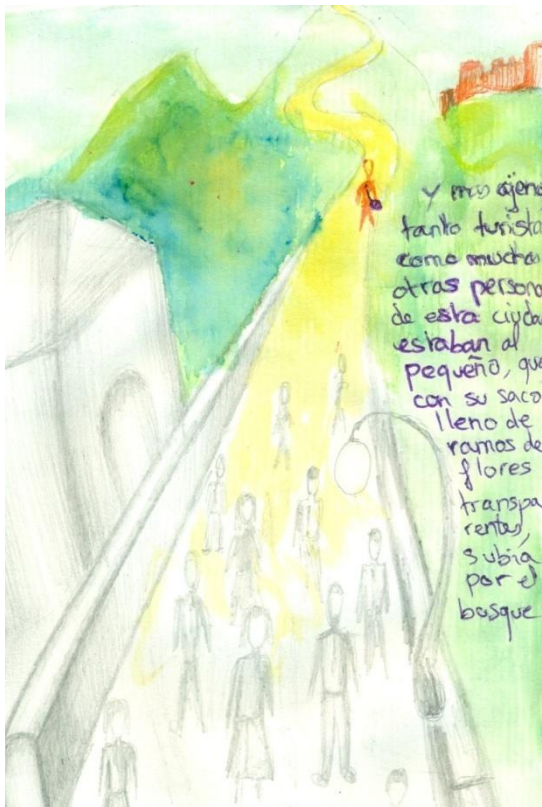 y mas ajeno
tanto turista
como muchas
otras persona
de esta ciuda
estaban al
pequeño, que
con su saco
lleno de
ramos de
flores
transpa
rentes,
subía
por el
bosque